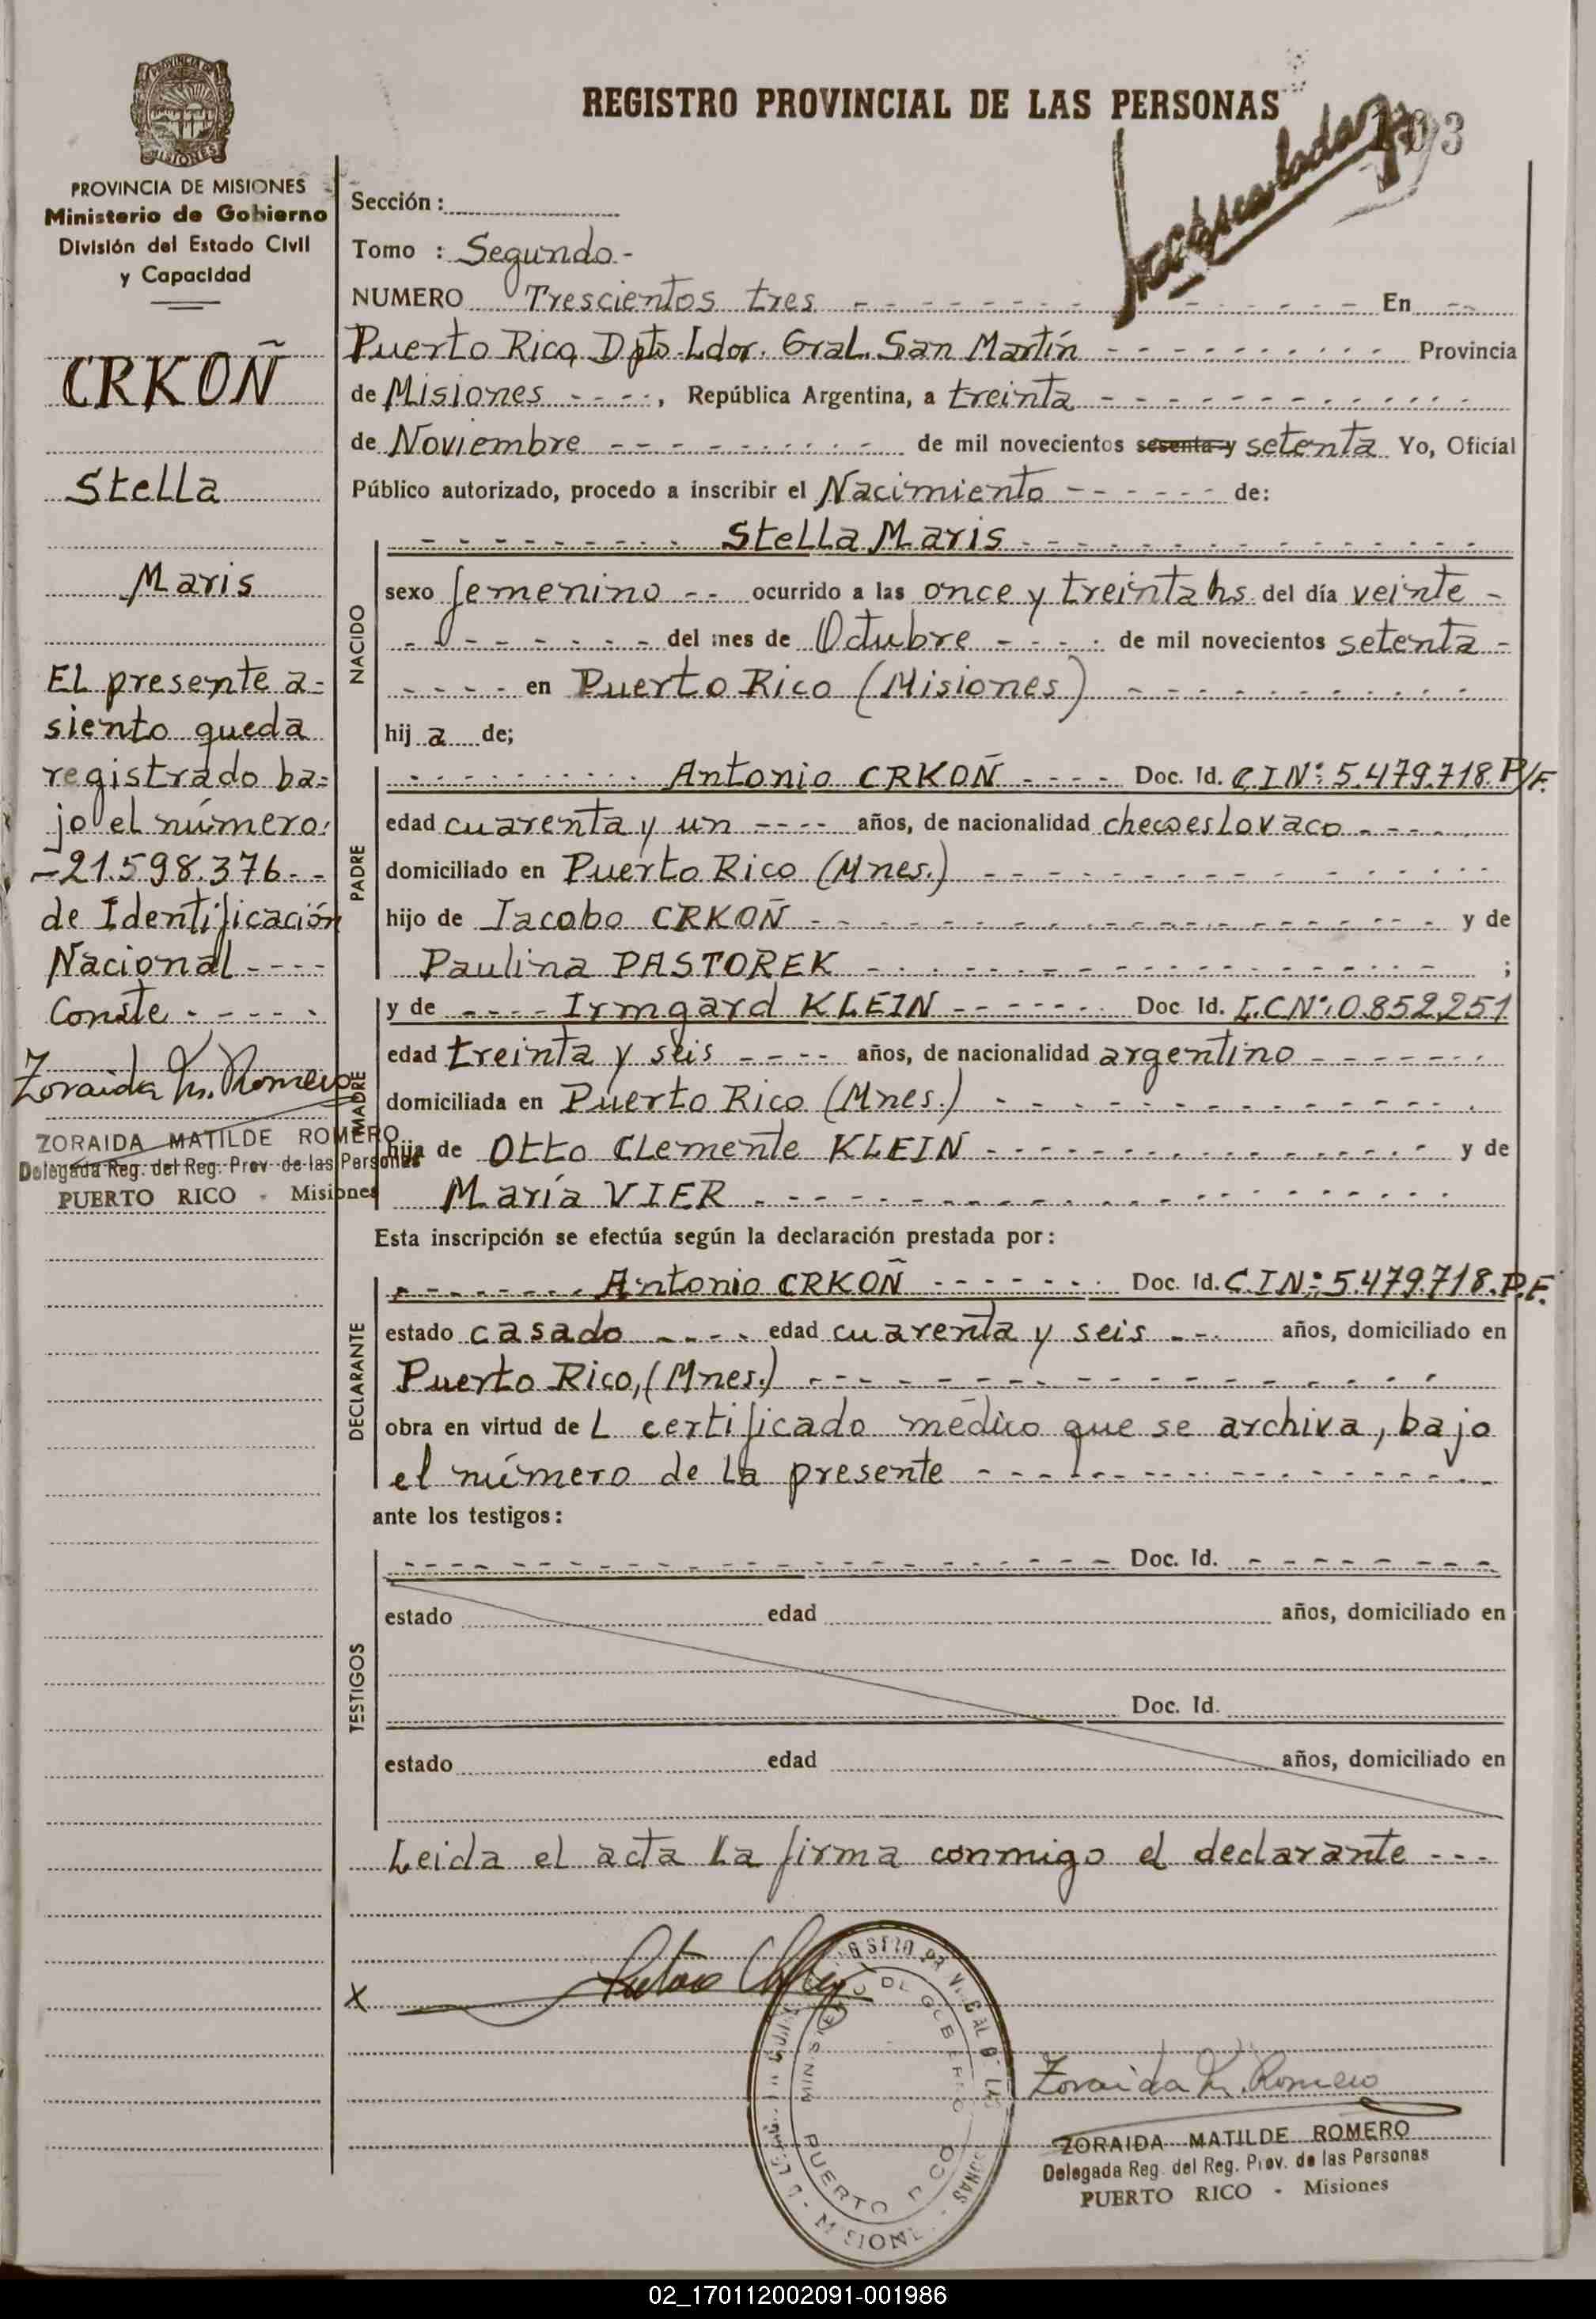 REGISTRO PROVINCIAL DE LAS PERSONAS
PROVINCIA DE MISIONES
Ministerio de Gobierno
División del Estado Civil
y Capacidad
CRKOÑ
Stella
Maris
El presente a=
siento queda
registrado ba=
jo el número:
-21.598.376.--
de Identificación
Nacional----
Conste-----
Zoraida M. Romero
ZORAIDA MATILDE ROMERO
Delegada Reg. del Reg. Prov. de las Personas
PUERTO RICO - Misiones
Sección:
Tomo : Segundo.-
NUMERO Trescientos tres En
Puerto Rico, Dpto. Ldor. Gral. San Martín Provincia
de Misiones ----, República Argentina, a treinta
de Noviembre de mil novecientos sesenta y setenta Yo, Oficial
Público autorizado, procedo a inscribir el Nacimiento de:
Stella Maris
NACIDO
sexo femenino -- ocurrido a las once y treinta hs. del día veinte -
del mes de Octubre de mil novecientos setenta -
en Puerto Rico (Misiones)
hij a de;
PADRE
Antonio CRKOÑ ---- Doc. Id. C.I Nº: 5.479.718. P/F.
edad cuarenta y un ---- años, de nacionalidad checoeslovaco
domiciliado en Puerto Rico (Mnes.)
hijo de Iacobo CRKOÑ y de
Paulina PASTOREK ;
MADRE
y de ---- Irmgard KLEIN Doc Id. L.C Nº: 0.852.251
edad treinta y seis ---- años, de nacionalidad argentino
domiciliada en Puerto Rico (Mnes.)
hija de Otto Clemente KLEIN y de
María VIER
Esta inscripción se efectúa según la declaración prestada por:
DECLARANTE
Antonio CRKOÑ Doc. Id. C.I Nº: 5.479.718. P.F.
estado casado ---- edad cuarenta y seis --- años, domiciliado en
Puerto Rico, (Mnes.)
obra en virtud de L certificado médico que se archiva, bajo
el número de la presente
ante los testigos:
TESTIGOS
Doc. Id.
estado edad años, domiciliado en
Doc. Id.
estado edad años, domiciliado en
Leida el acta la firma conmigo el declarante ---
x
MINISTERIO DE GOBIERNO
PUERTO RICO
Zoraida M. Romero
ZORAIDA MATILDE ROMERO
Delegada Reg. del Reg. Prov. de las Personas
PUERTO RICO - Misiones
02_170112002091-001986